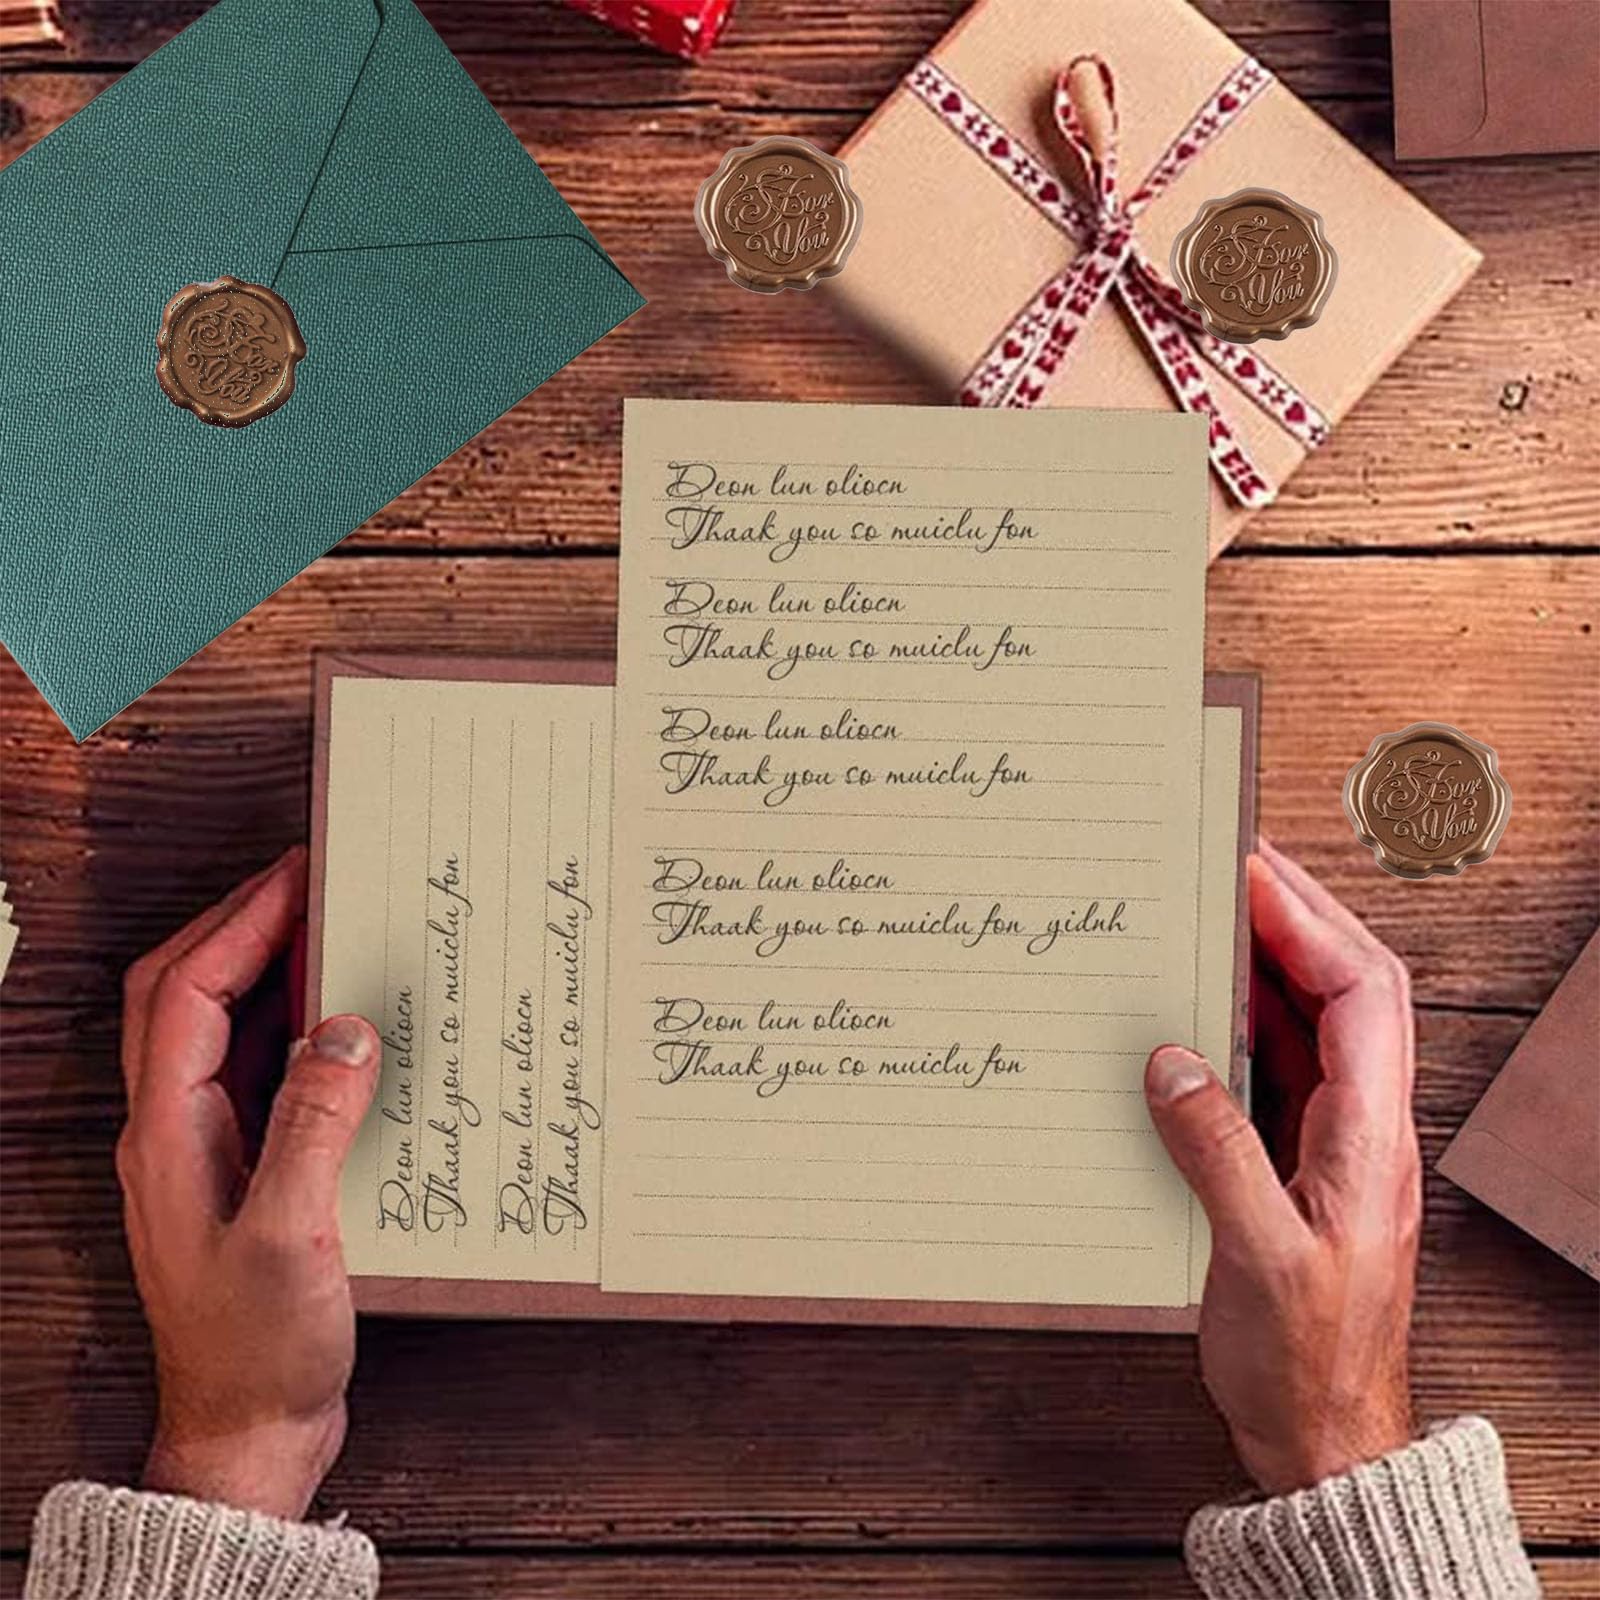 For
You
For
You
For
You
Deon lun oliocn
Thaak you so muiclu fon
Deon lun oliocn
Thaak you so muiclu fon
Deon lun oliocn
Thaak you so muiclu fon
Deon lun oliocn
Thaak you so muiclu fon yidnh
Deon lun oliocn
Thaak you so muiclu fon
Deon lun oliocn
Thaak you so muiclu fon
Deon lun oliocn
Thaak you so muiclu fon
For
You